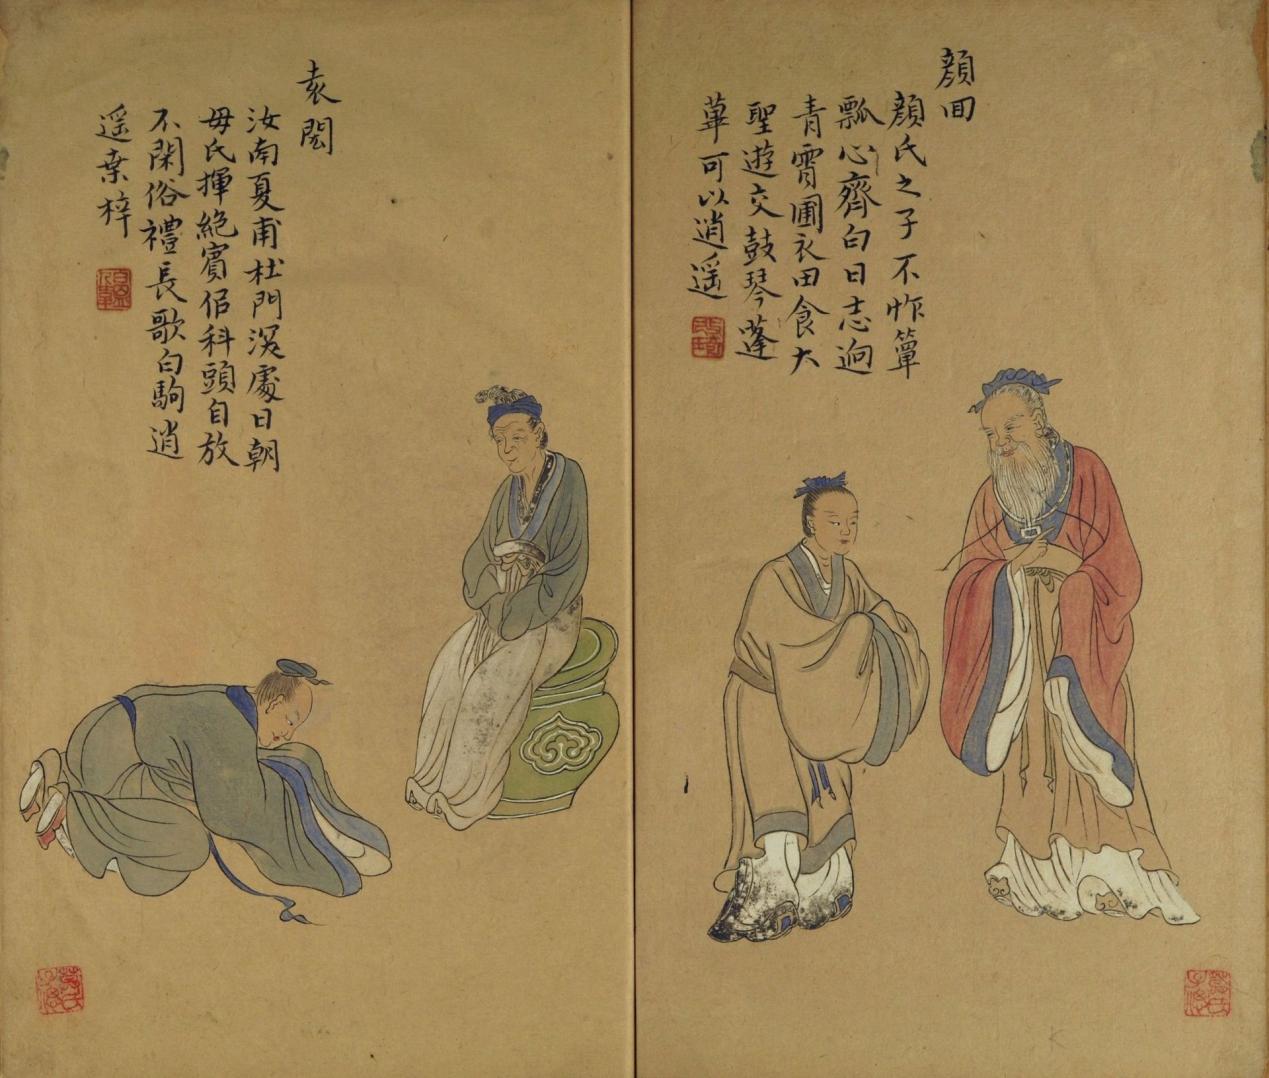 顏回
顏氏之子不怍簞
瓢心齊白日志迥
青霄圃衣田食大
聖遊交鼓琴蓬
蓽可以逍遥
袁閎
汝南夏甫杜門深處日朝
毋氏揮絶賓侶科頭自放
不閑俗禮長歌白駒逍
遥桒梓